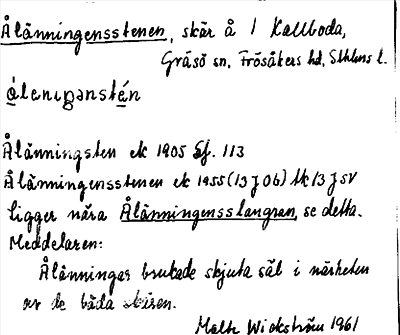 Ålänningensstenen, skär å 1 Kallboda,
Gräsö sn, Frösåkers hd, Sthlms l.
Ålänningsten ek 1905 Ef. 113
Ålänningensstenen ek 1955 (13 J 0b) tk 13 J SV
Ligger nära Ålänningensslangran, se detta.
Meddelaren:
Ålänningar brukade skjuta säl i närheten
av de båda skären.
Malte Wickström 1961